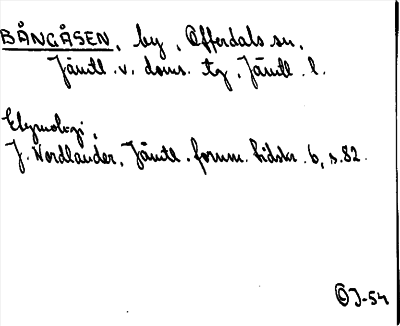 BÅNGÅSEN, by, Offerdals sn,
Jämtl. v. doms. tg, Jämtl. l.
Etymologi,
J. Nordlander, Jämtl. fornm. tidskr. 6, s. 82.
ⒸJ-54